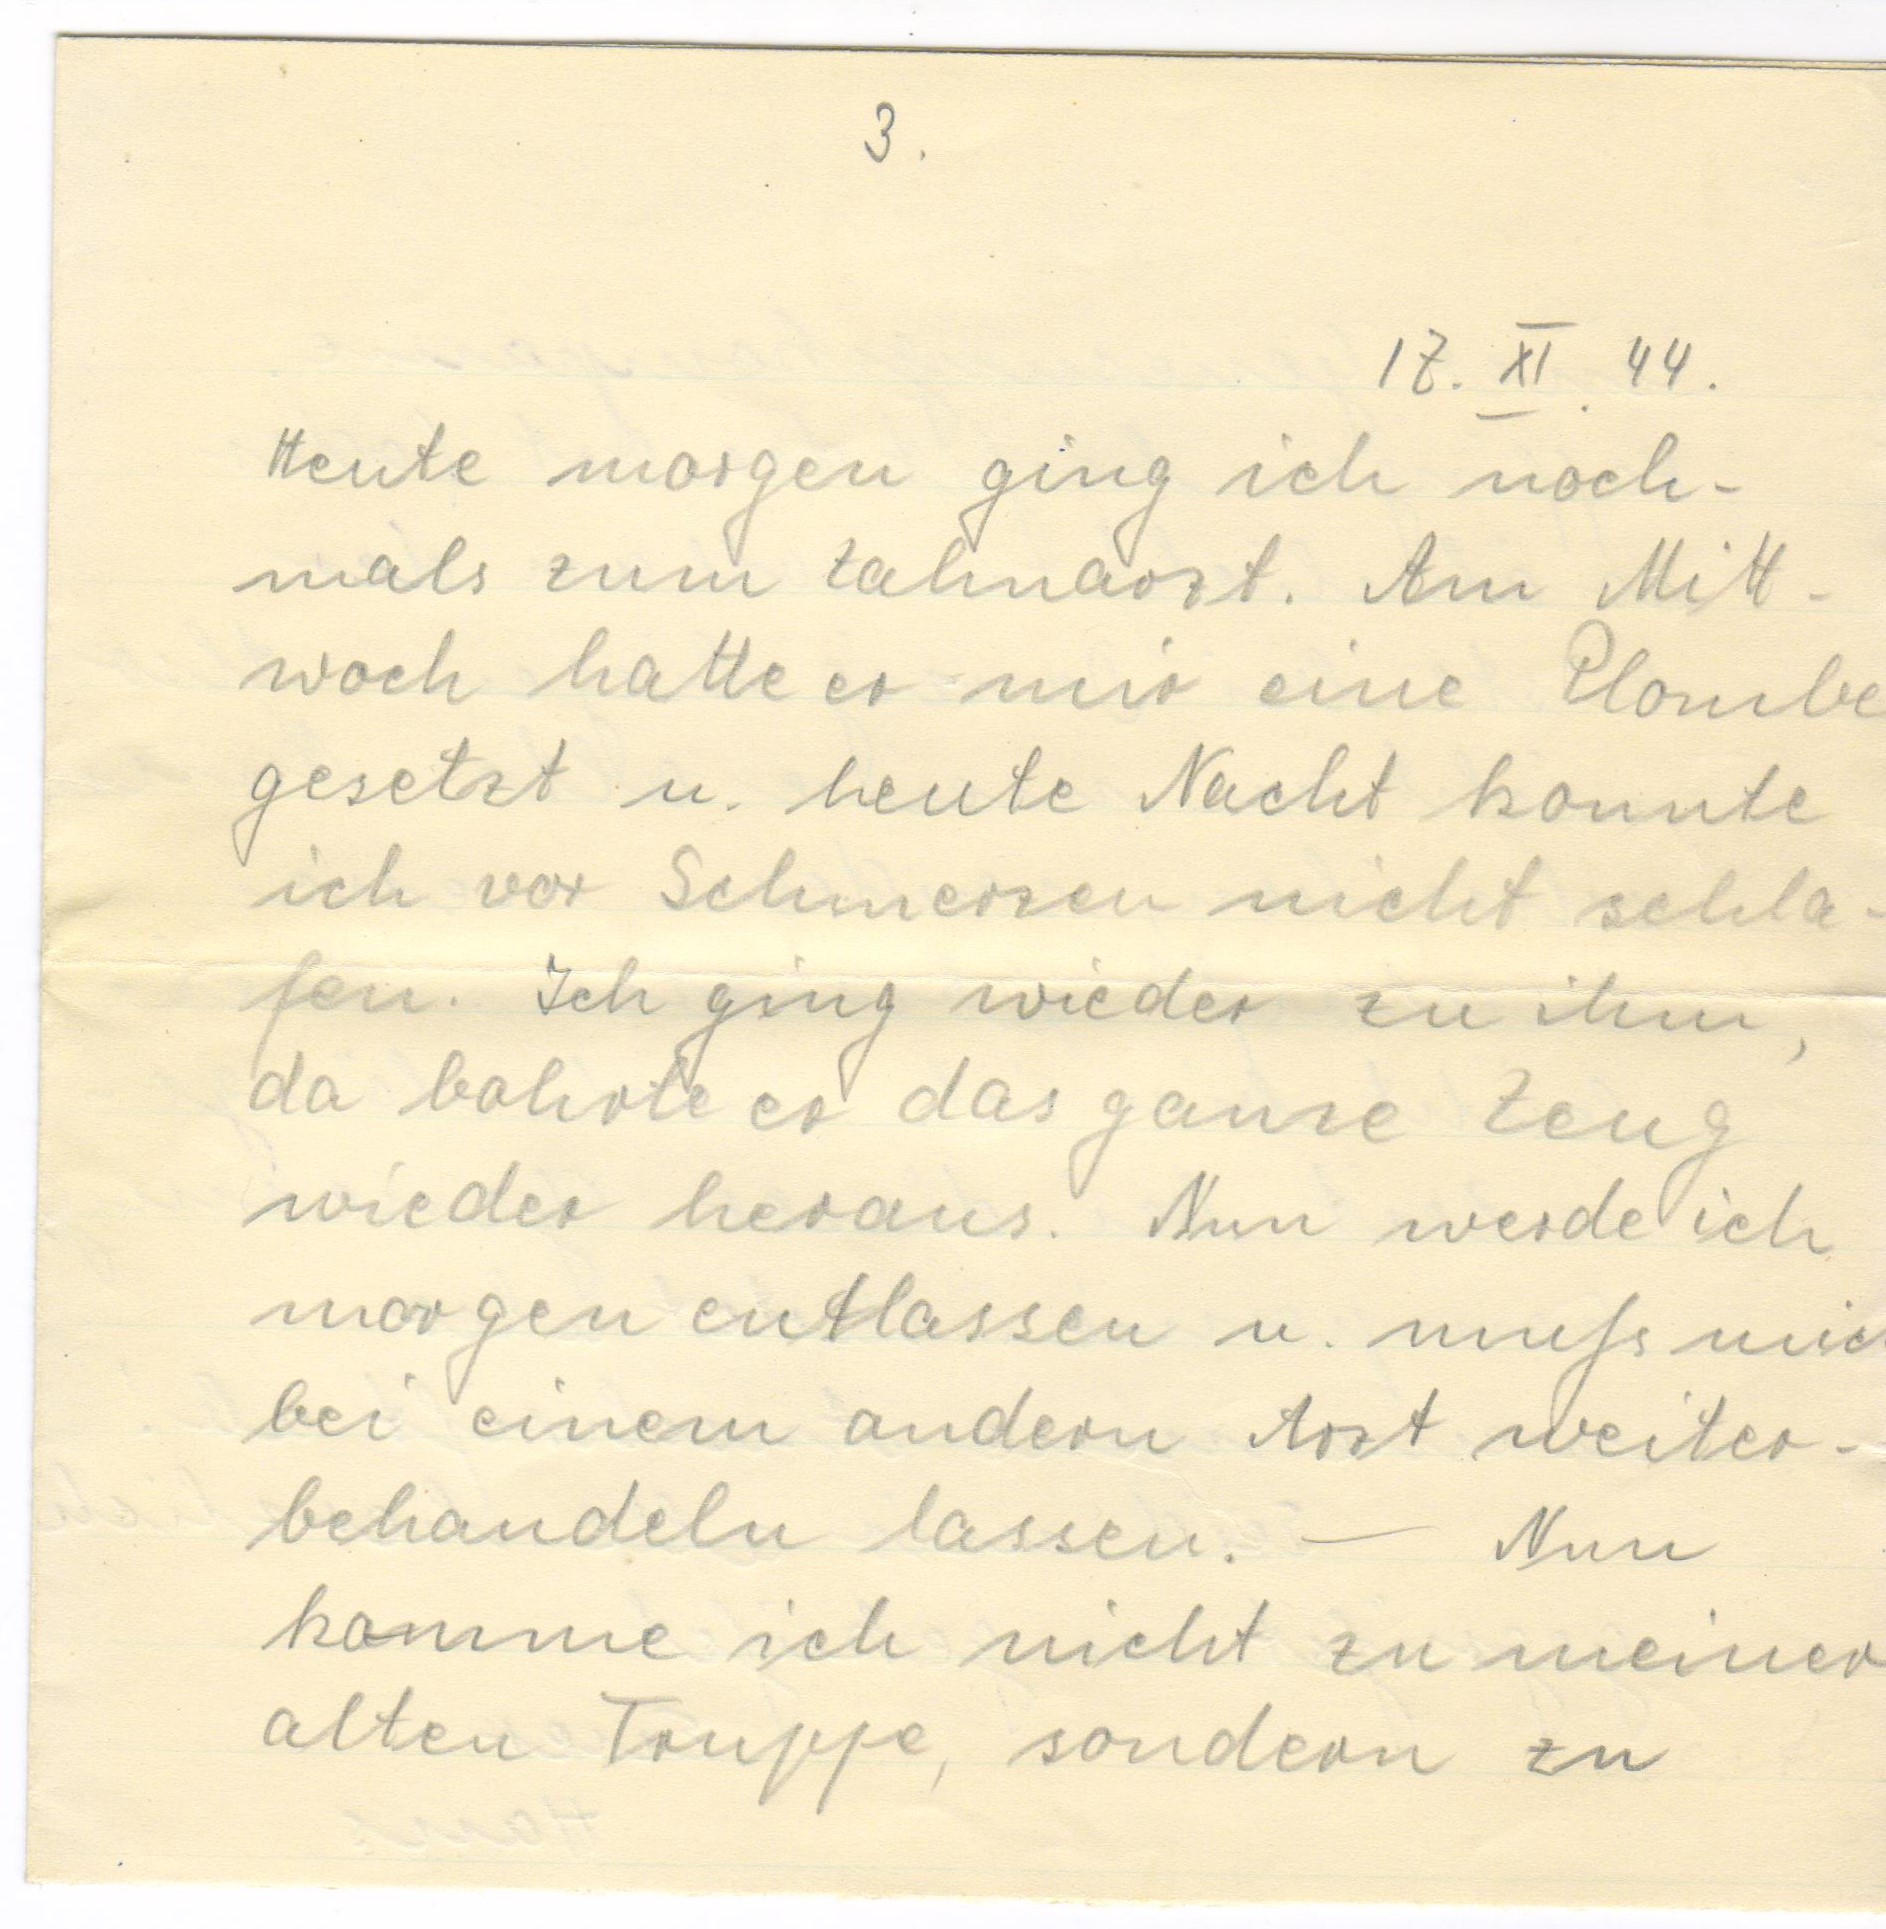 3.
17. XI. 44.
Heute morgen ging ich noch-
mals zum Zahnarzt. Am Mitt-
woch hatte er mir eine Plombe
gesetzt u. heute Nacht konnte
ich vor Schmerzen nicht schla-
fen. Ich ging wieder zu ihm,
da bohrte er das ganze Zeug
wieder heraus. Nun werde ich
morgen entlassen u. muß mic
bei einem andern Arzt weiter-
behandeln lassen. — Nun
komme ich nicht zu meiner
alten Truppe, sondern zu